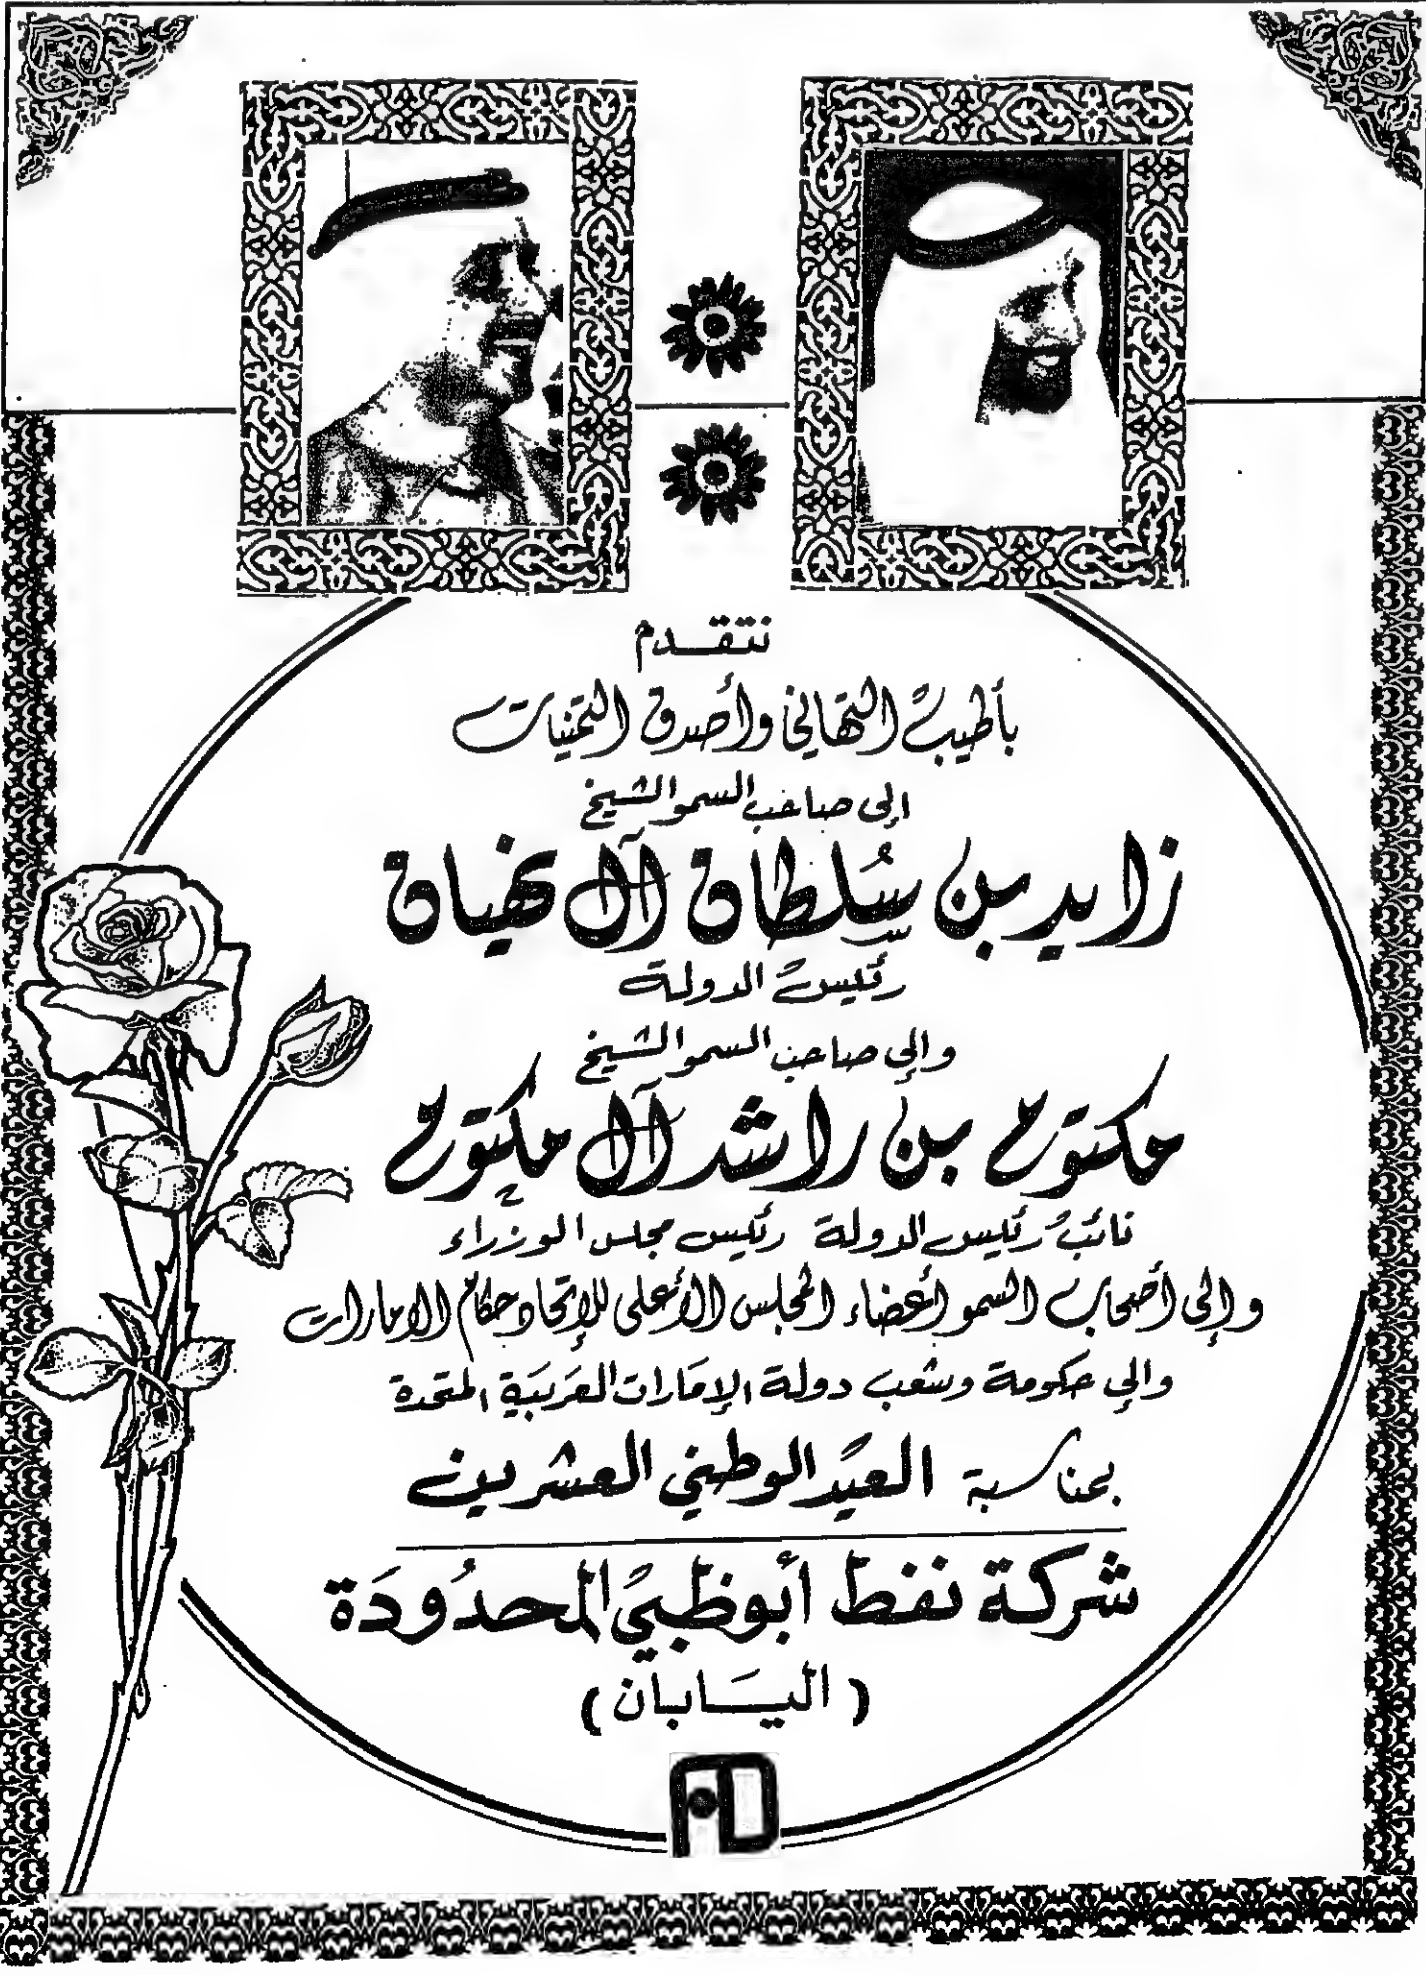 نتقدم
بأطيب التهاني وأصدق التمنيات
إلى صاحب السمو الشيخ
زايد بن سلطان آل نهيان
رئيس الدولة
وإلى صاحب السمو الشيخ
مكتوم بن راشد آل مكتوم
نائب رئيس الدولة رئيس مجلس الوزراء
وإلى أصحاب السمو أعضاء المجلس الأعلى للإتحاد حكام الامارات
وإلى حكومة وشعب دولة الإمارات العربية المتحدة
بمناسبة العيد الوطني العشرين
شركة نفط أبوظبي المحدودة
(اليابان)